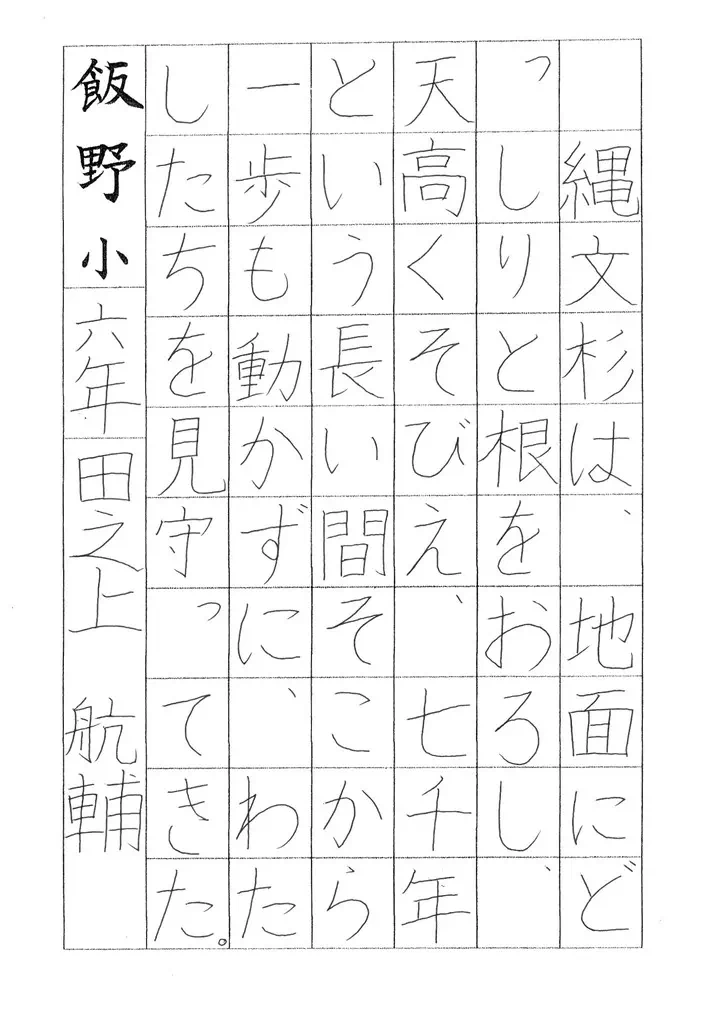 縄文杉は、地面にど
っしりと根をおろし、
天高くそびえ、七千年
という長い間そこから
一歩もう動かずに、わた
したちを見守ってきた。
飯野小 六年 田之上 航輔